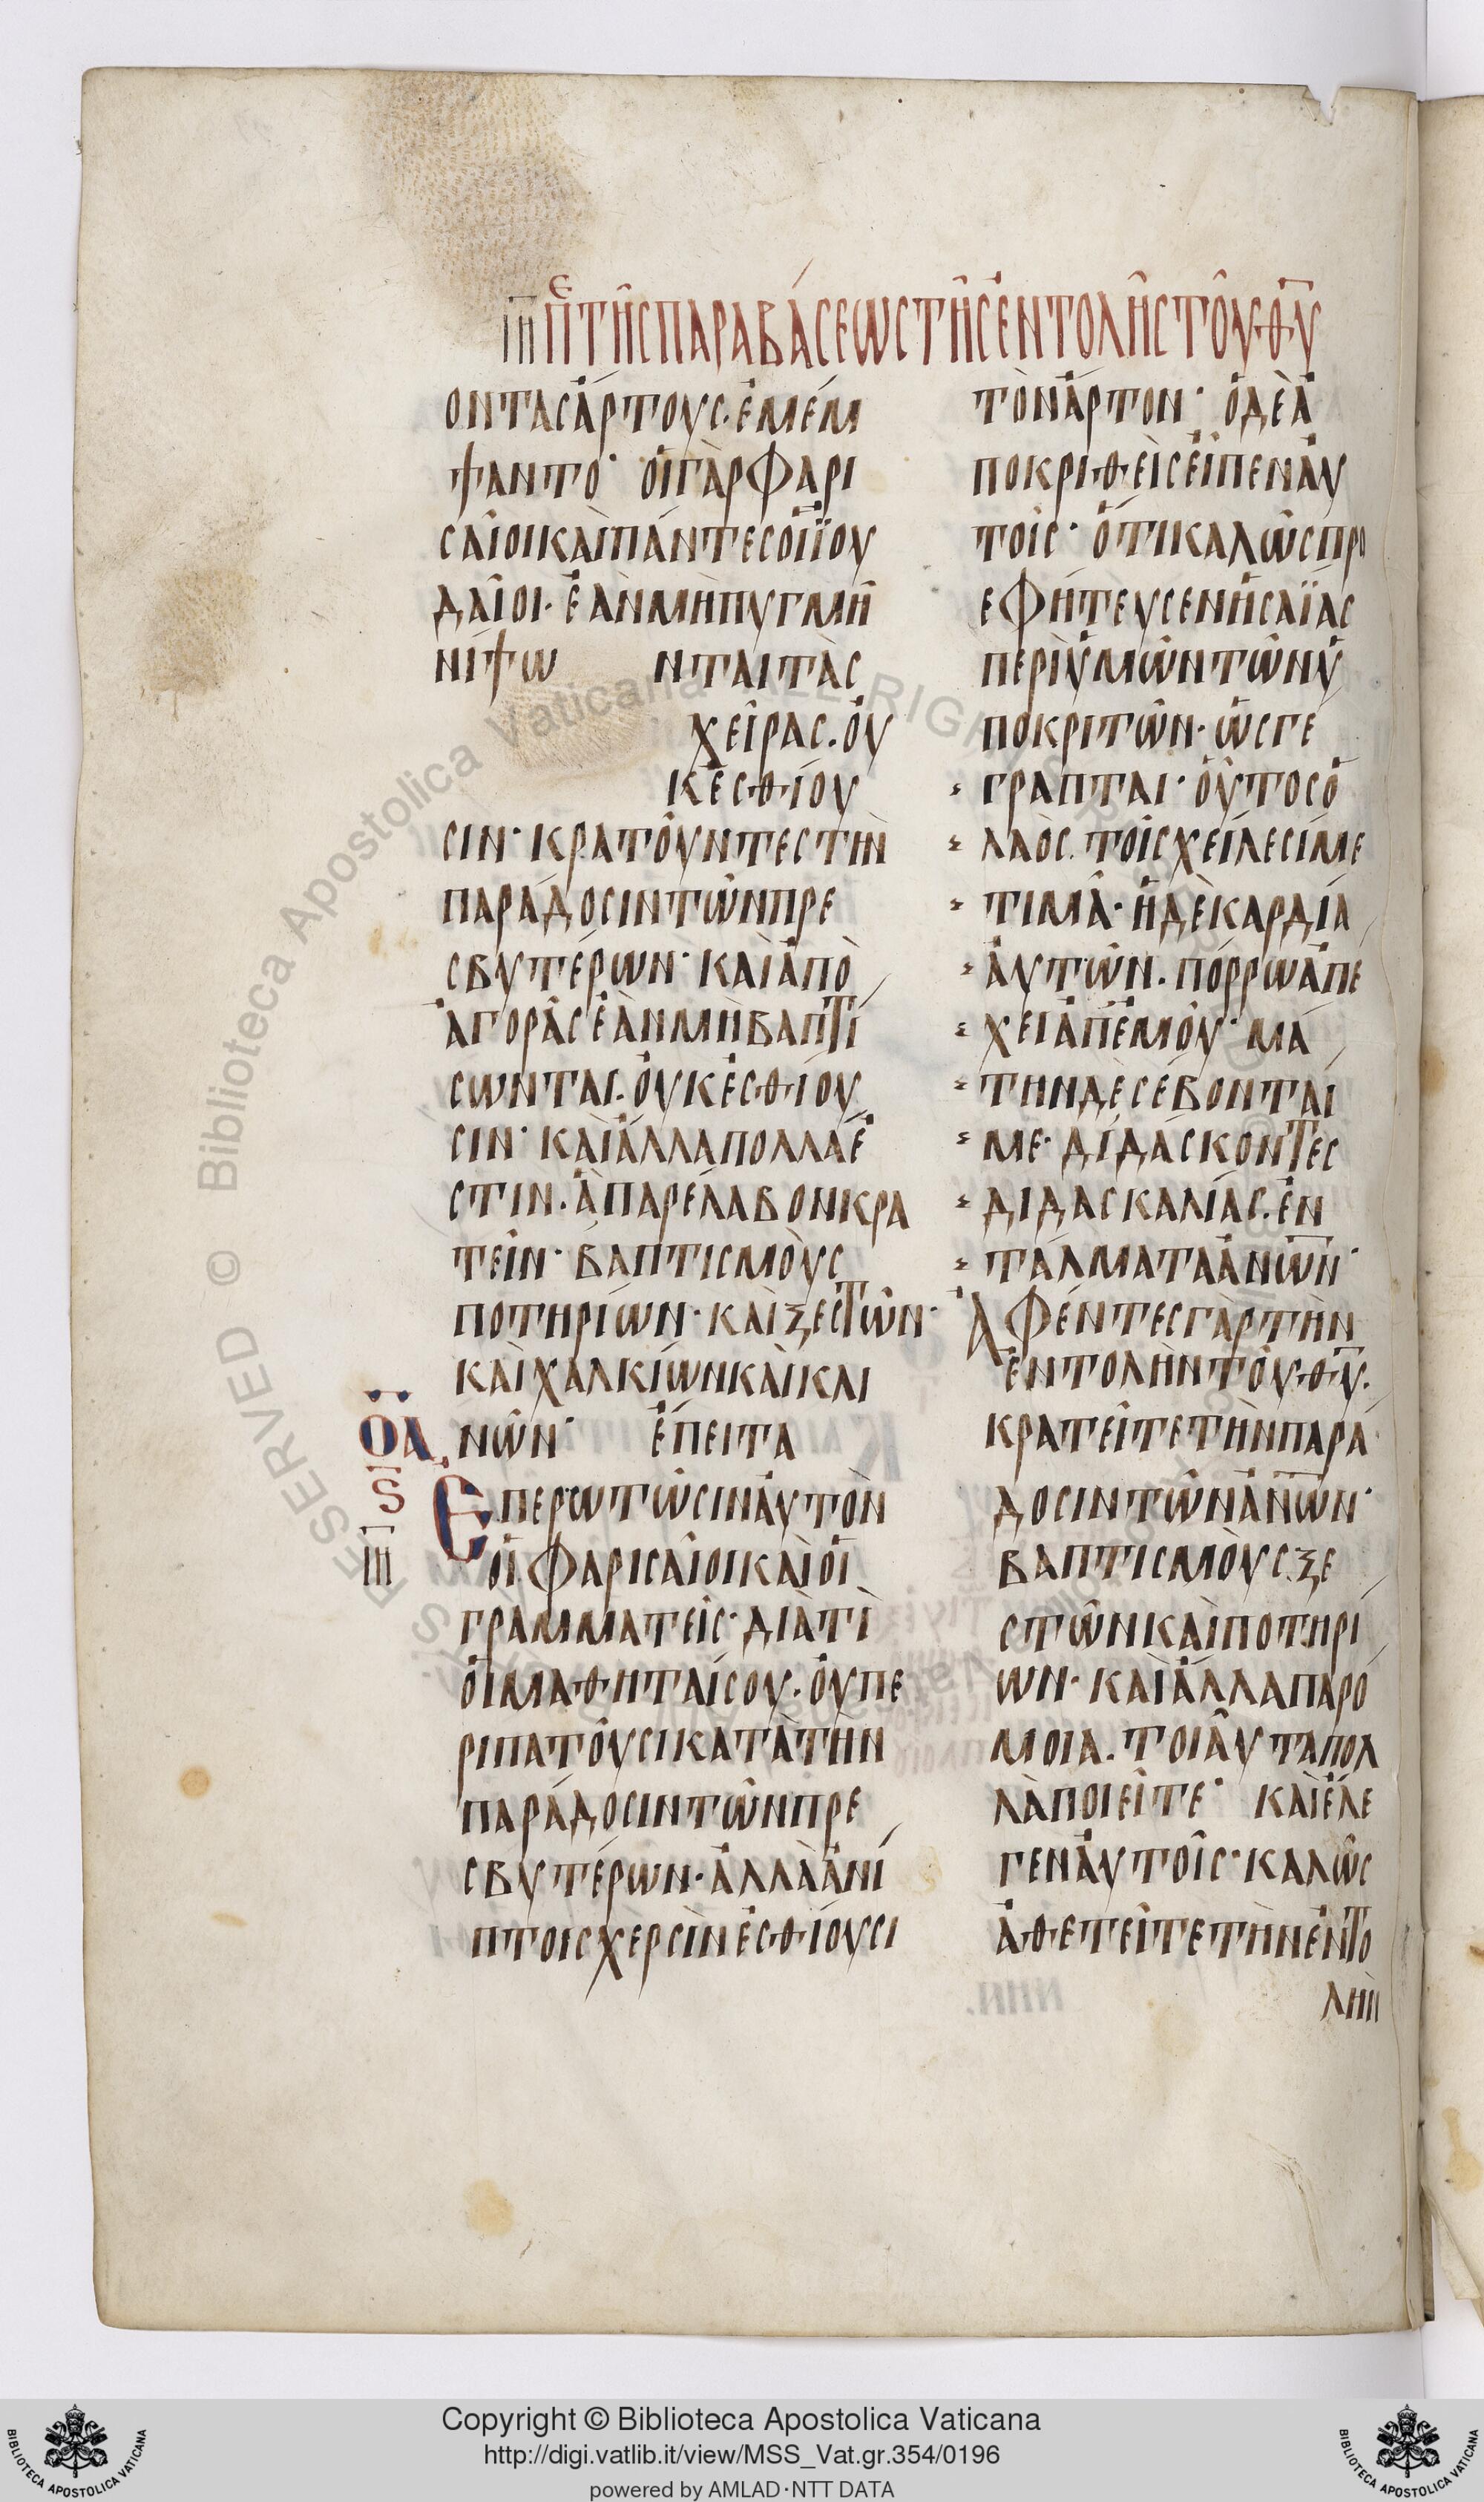 ΙΗ ΠΕ ΤΗ͂Σ ΠΑΡΑΒΆΣΕΩΣ ΤΗ͂Σ ἘΝΤΟΛΗ͂Σ ΤΟΥ͂ ΘΥ
οντασάρτους· ἐμέμ
ψαντο· οἱγὰρφαρι
σαῖοικαὶπάντεσοἱϊου
δαῖοι· ἐὰνμὴπυγμῆ
νίψω νταιτὰς
χεῖρας. οὐ
κἐσθίου
σιν· κρατοῦντεστὴν
παράδοσιντῶνπρε
σβυτέρων· καὶἀπὸ
ἀγορᾶσἐὰνμὴβαπτί
σωνται. οὐκἐσθίου
σιν· καὶἄλλαπολλαἐ
στιν. ἃπαρέλαβονκρα
τεῖν· βαπτισμοὺς
ποτηρίων· καὶξεστῶν·
καὶχαλκίωνκαὶκλι
νῶν· ἔπειτα
οα
ς
ιη
Ἐπερωτῶσιναὐτὸν
οἱφαρισαῖοικαὶοἱ
γραμματεῖς· διὰτὶ
οἱμαθηταίσου· οὐπε
ριπατοῦσικατὰτὴν
παράδοσιντῶνπρε
σβυτέρων· ἀλλὰἀνί
πτοισχερσὶνἐσθίουσι
τὸνἄρτον· ὁδὲἀ
ποκριθεὶσεἶπεναὐ
τοῖς· ὅτικαλῶσπρο
εφήτευσενἡσαΐας
περὶὑμῶντῶνὑ
ποκριτῶν· ὡσγε
γραπται· οὗτοσὁ
λαὸς. τοῖσχείλεσίμε
τιμᾶ· ἡδὲκαρδία
αὐτῶν. πόρρωἀπε
χειἀπἐμοῦ· μά
τηνδὲσέβονταί
με· διδάσκοντες
διδασκαλίας. ἐν
τάλματαἀνων·
Ἀφέντεσγὰρτὴν
ἐντολὴντοῦθυ.
κρατεῖτετὴνπαρά
δοσιντῶνἀνων·
βαπτισμοὺςξε
στῶνκαὶποτηρί
ων· καὶἄλλαπαρό
μοια. τοιαῦταπολ
λὰποιεῖτε· καὶἔλε
γεναὐτοῖς· καλῶς
ἀθετεῖτετὴνἐντο
λὴν
Copyright © Biblioteca Apostolica Vaticana
http://digi.vatlib.it/view/MSS_Vat.gr.354/0196
powered by AMLAD·NTT DATA
BIBLIOTECA APOSTOLICA VATICANA
BIBLIOTECA APOSTOLICA VATICANA